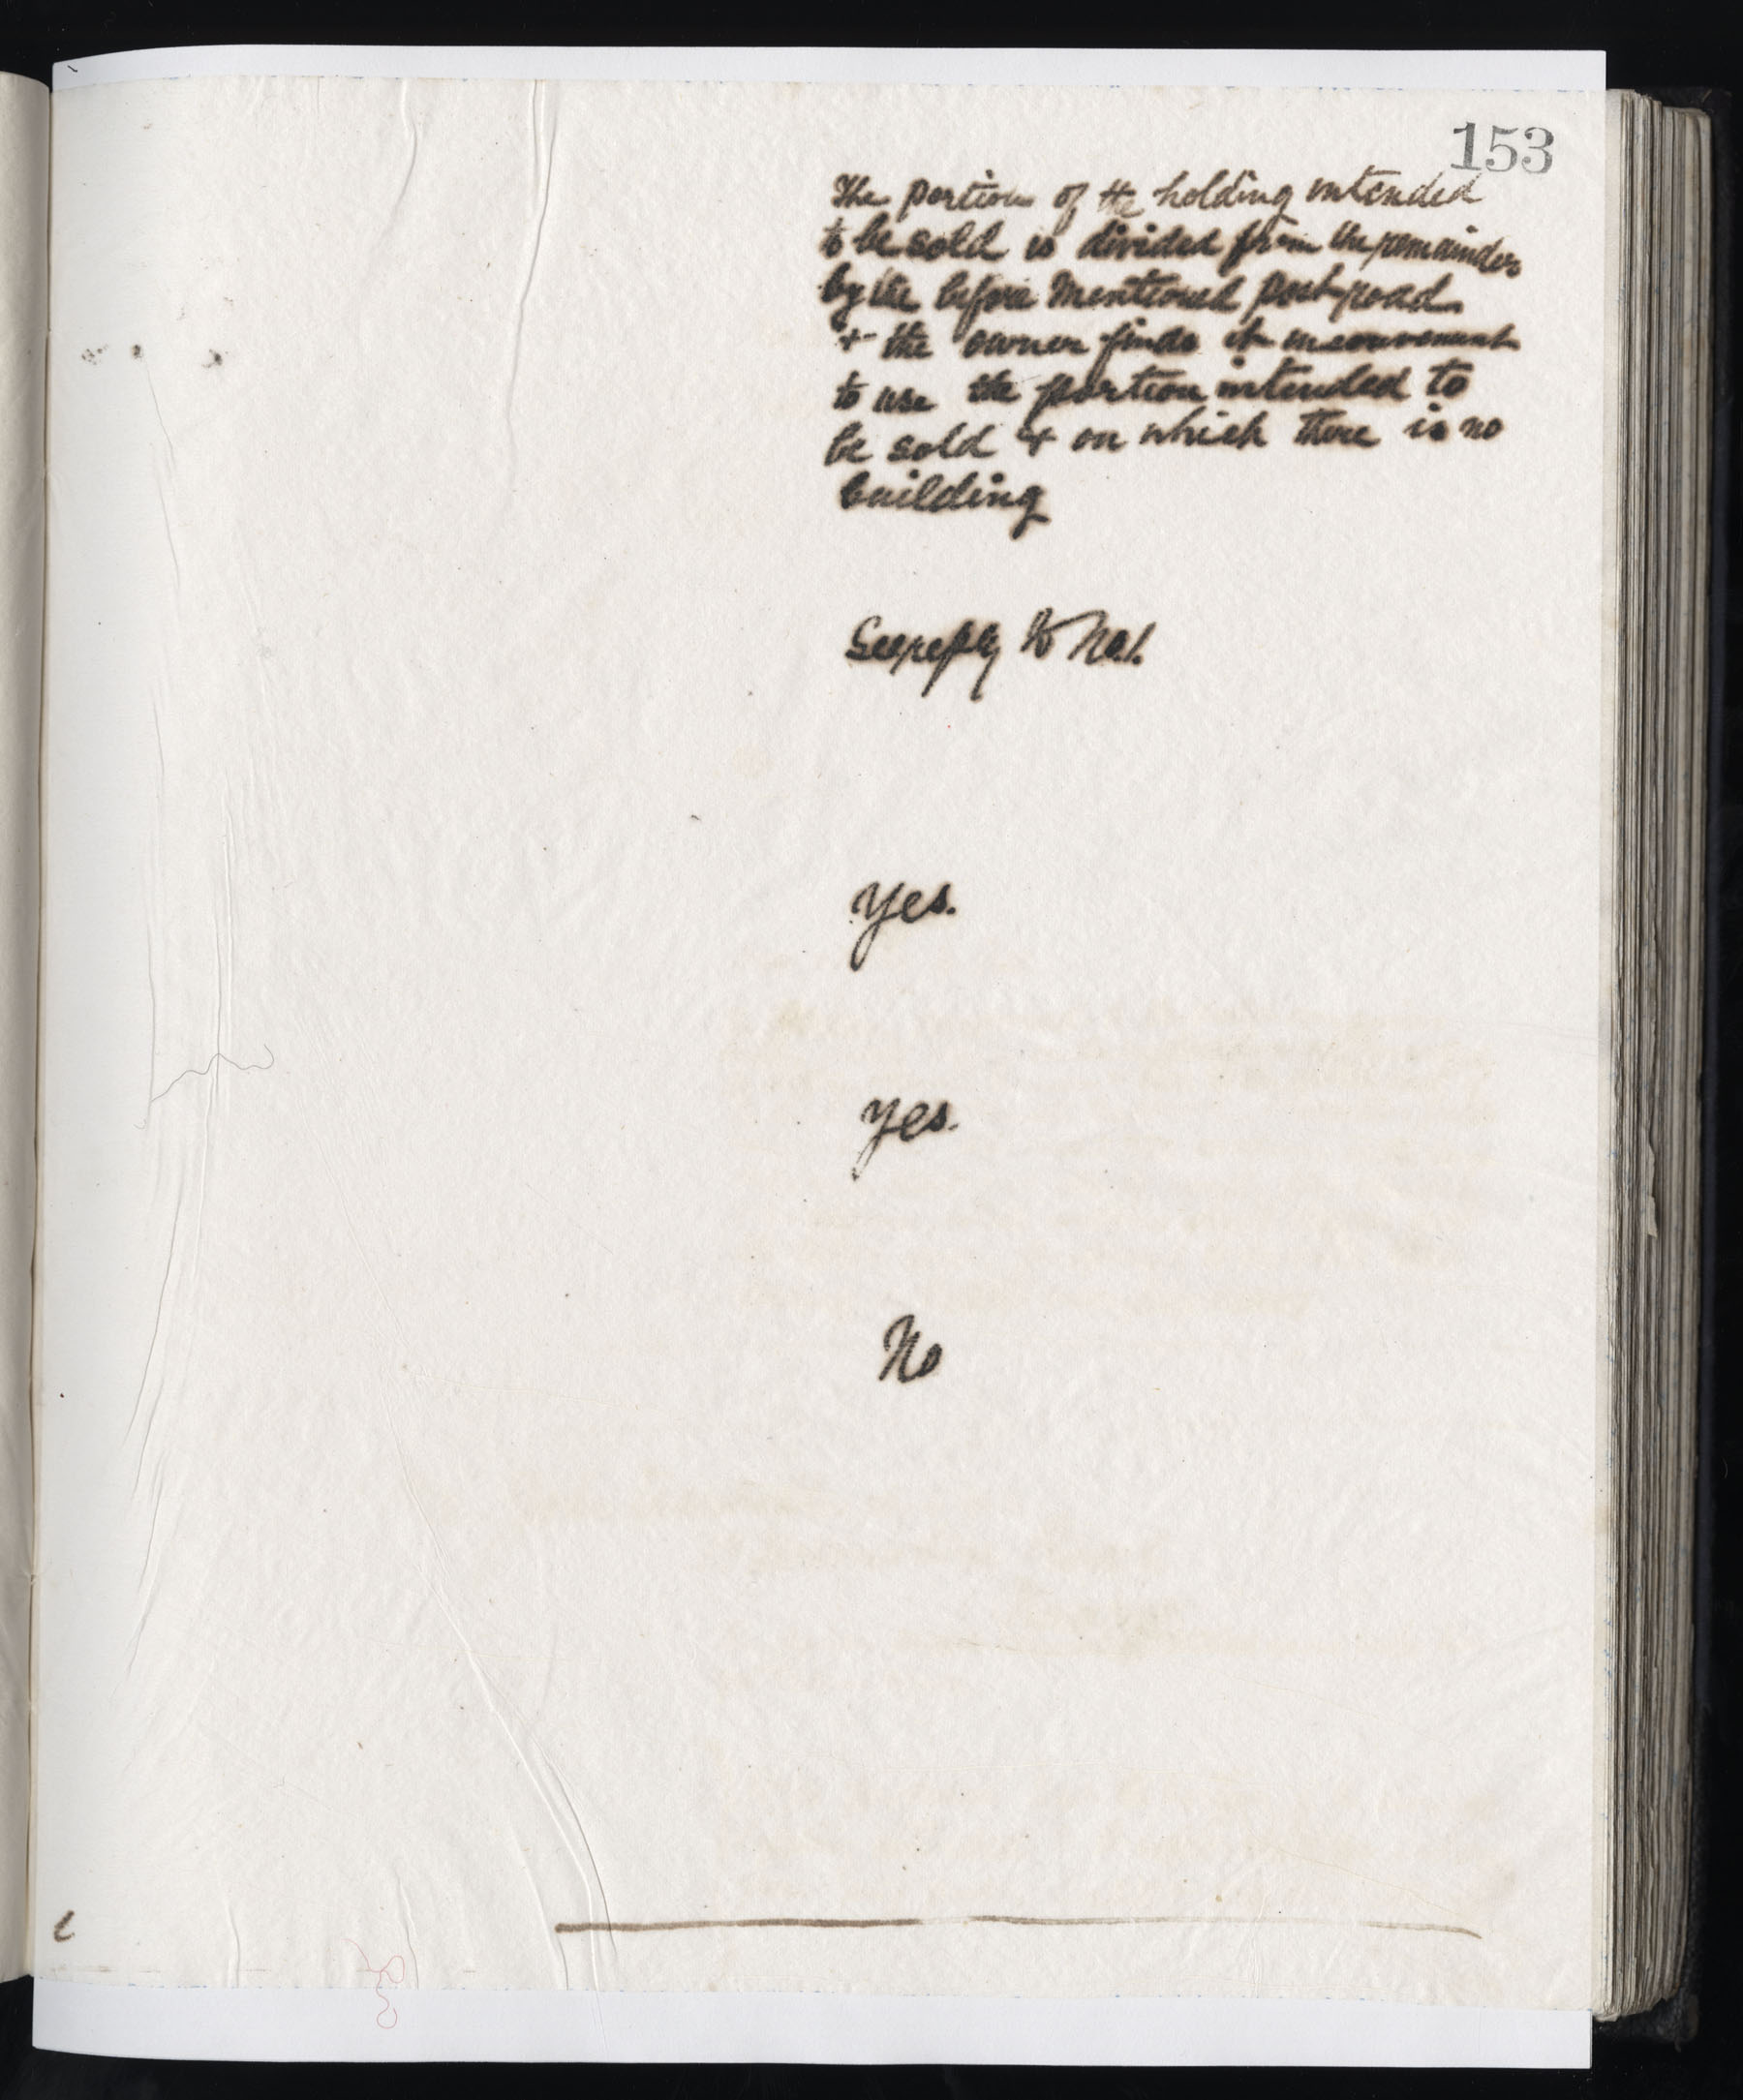 153
The portion of the holding intended
to be sold is divided from the remainder
by the before mentioned post road
+ the owner finds it inconvenient
to use the portion intended to
be sold + on which there is no
building
See reply to No 1.
Yes.
Yes.
No